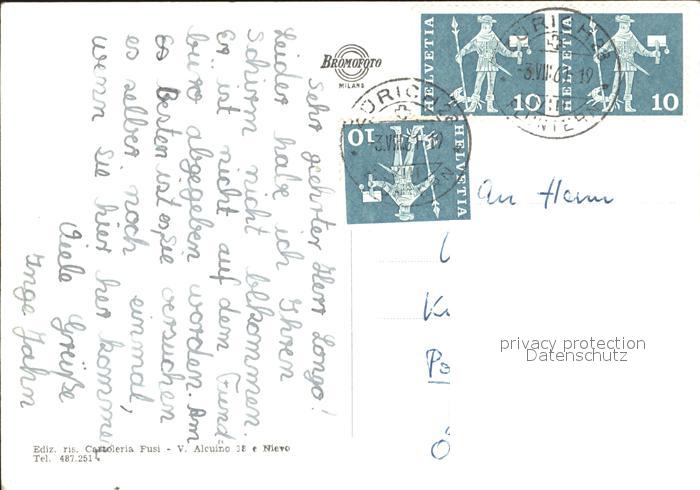 Sehr geehrter Herr Longo!
Leider habe ich Ihren
Schirm nicht bekommen.
Er ist nicht auf dem Fund-
büro abgegeben worden. Am
Besten ist es, Sie versuchen
es selber noch einmal,
wenn Sie hier her kommen
Viele Grüße
Inge Jahn
BROMOFOTO
MILANO
HELVETIA
10
HELVETIA
10
HELVETIA
10
ZÜRICH
ZÜRICH
An Herrn
K
Po
Ö
privacy protection
Datenschutz
Ediz. ris. Cartoleria Fusi - V. Alcuino 18 e Nievo
Tel. 487.251